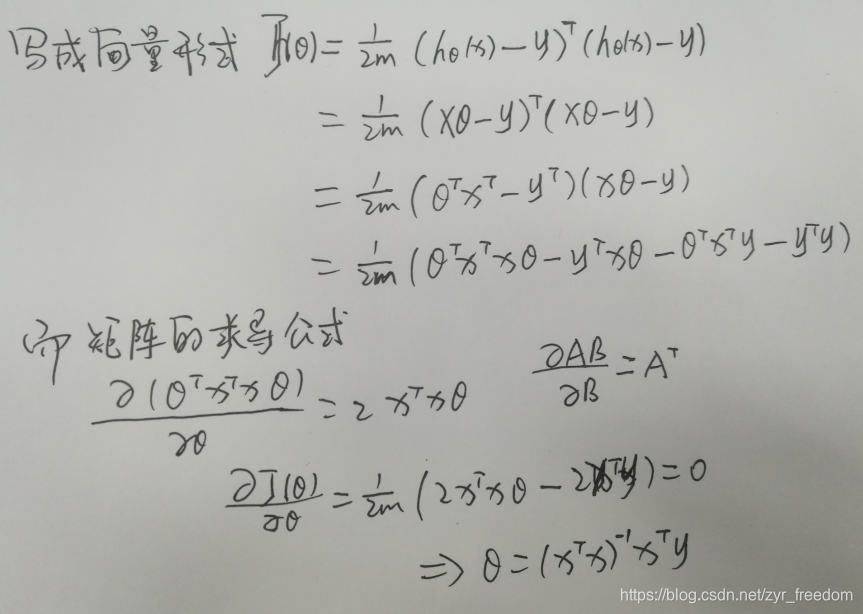 写成向量形式 J(θ) = 1/2m (hθ(x) − y)ᵀ(hθ(x) − y)
= 1/2m (Xθ − y)ᵀ(Xθ − y)
= 1/2m (θᵀxᵀ − yᵀ)(xθ − y)
= 1/2m (θᵀxᵀxθ − yᵀxθ − θᵀxᵀy − yᵀy)
矩阵的求导公式
∂(θᵀxᵀxθ)/∂θ = 2xᵀxθ ∂AB/∂B = Aᵀ
∂J(θ)/∂θ = 1/2m (2xᵀxθ − 2xᵀy) = 0
⇒ θ = (xᵀx)⁻¹xᵀy
https://blog.csdn.net/zyr_freedom